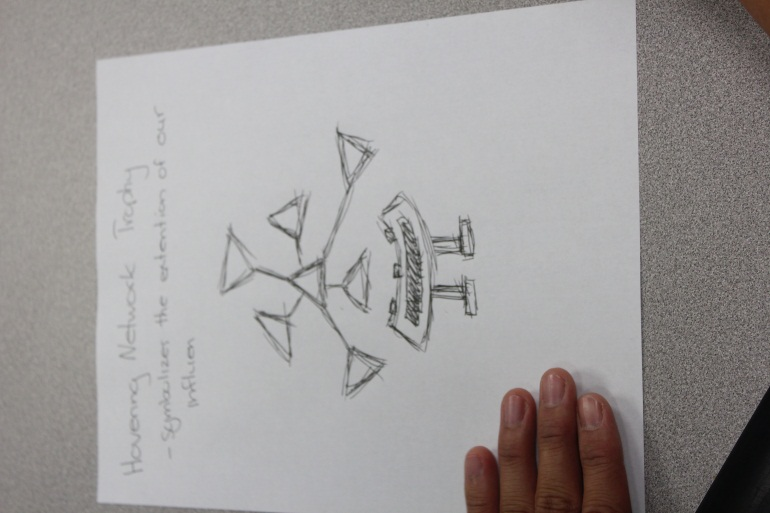 Hovering Network Trophy
- Symbolizes the extention of our
influen